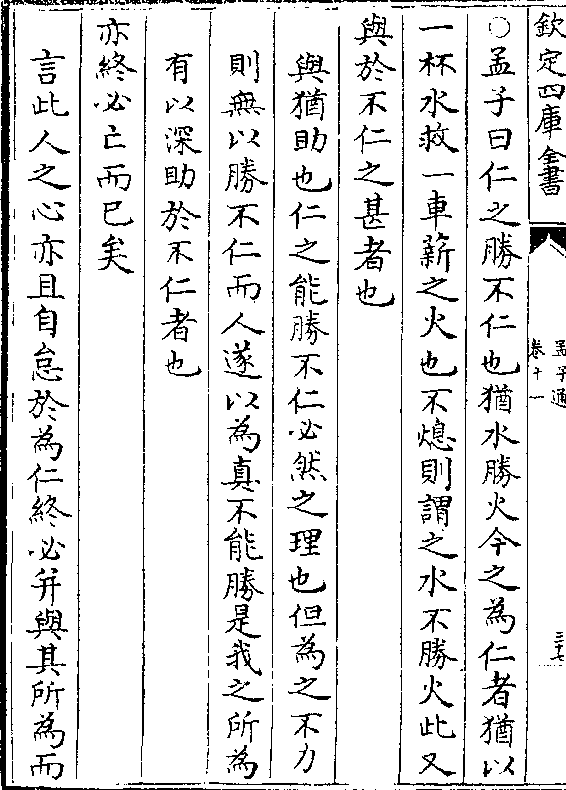 欽定四庫全書
孟子通
卷十一
三七
○孟子曰仁之勝不仁也猶水勝火今之為仁者猶以
一杯水救一車薪之火也不熄則謂之水不勝火此又
與於不仁之甚者也
與猶助也仁之能勝不仁必然之理也但為之不力
則無以勝不仁而人遂以為真不能勝是我之所為
有以深助於不仁者也
亦終必亡而已矣
言此人之心亦且自怠於為仁終必并與其所為而